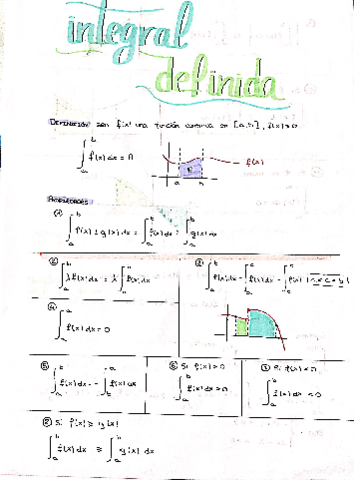 integral
definida
Definición: sea f(x) una función continua en [a,b], f(x)>0
∫ₐᵇ f(x) dx = A
f(x)
a b
Propiedades
∫ₐᵇ f(x) ± g(x) dx = ∫ₐᵇ f(x) dx ± ∫ₐᵇ g(x) dx
② ∫ₐᵇ λ f(x) dx = λ ∫ₐᵇ f(x) dx
④ ∫ₐᵃ f(x) dx = 0
⑤ ∫ₐᵇ f(x) dx = - ∫ f(x) dx
⑥ Si f(x) > 0
∫ₐᵇ f(x) dx > 0
⑦ Si f(x) < 0
∫ₐᵇ f(x) dx < 0
⑧ Si f(x) ≥ g(x)
∫ₐᵇ f(x) dx ≥ ∫ₐᵇ g(x) dx